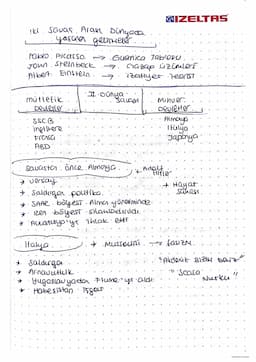 IZELTAS
İki Savaş Arası Dünyada
yaşanan gelişmeler
Pablo Picasso → Guernica Tablosu
John Steinbeck → Gazap Üzümleri
Albert Einstein → İzafiyet Teorisi
müttefik Devletler
II. Dünya Savaşı
Mihver Devletler
SSCB
Almanya
İngiltere
İtalya
Fransa
Japonya
ABD
Savaştan önce Almanya
→ Adolf Hitler
→ Versay
→ Hayat Sahası
→ Saldırgan politika
→ SAAR bölgesi Alman yönetiminde
→ Ren bölgesi silahlandırıldı
→ Avusturya'yı ilhak etti
İtalya
→ Mussolini → faşizm
→ Saldırgan
→ Arnavutluk
→ Yugoslavyadan Fiume'yi aldı
→ Habeşistan İşgali
"Akdeniz Bizim Deniz"